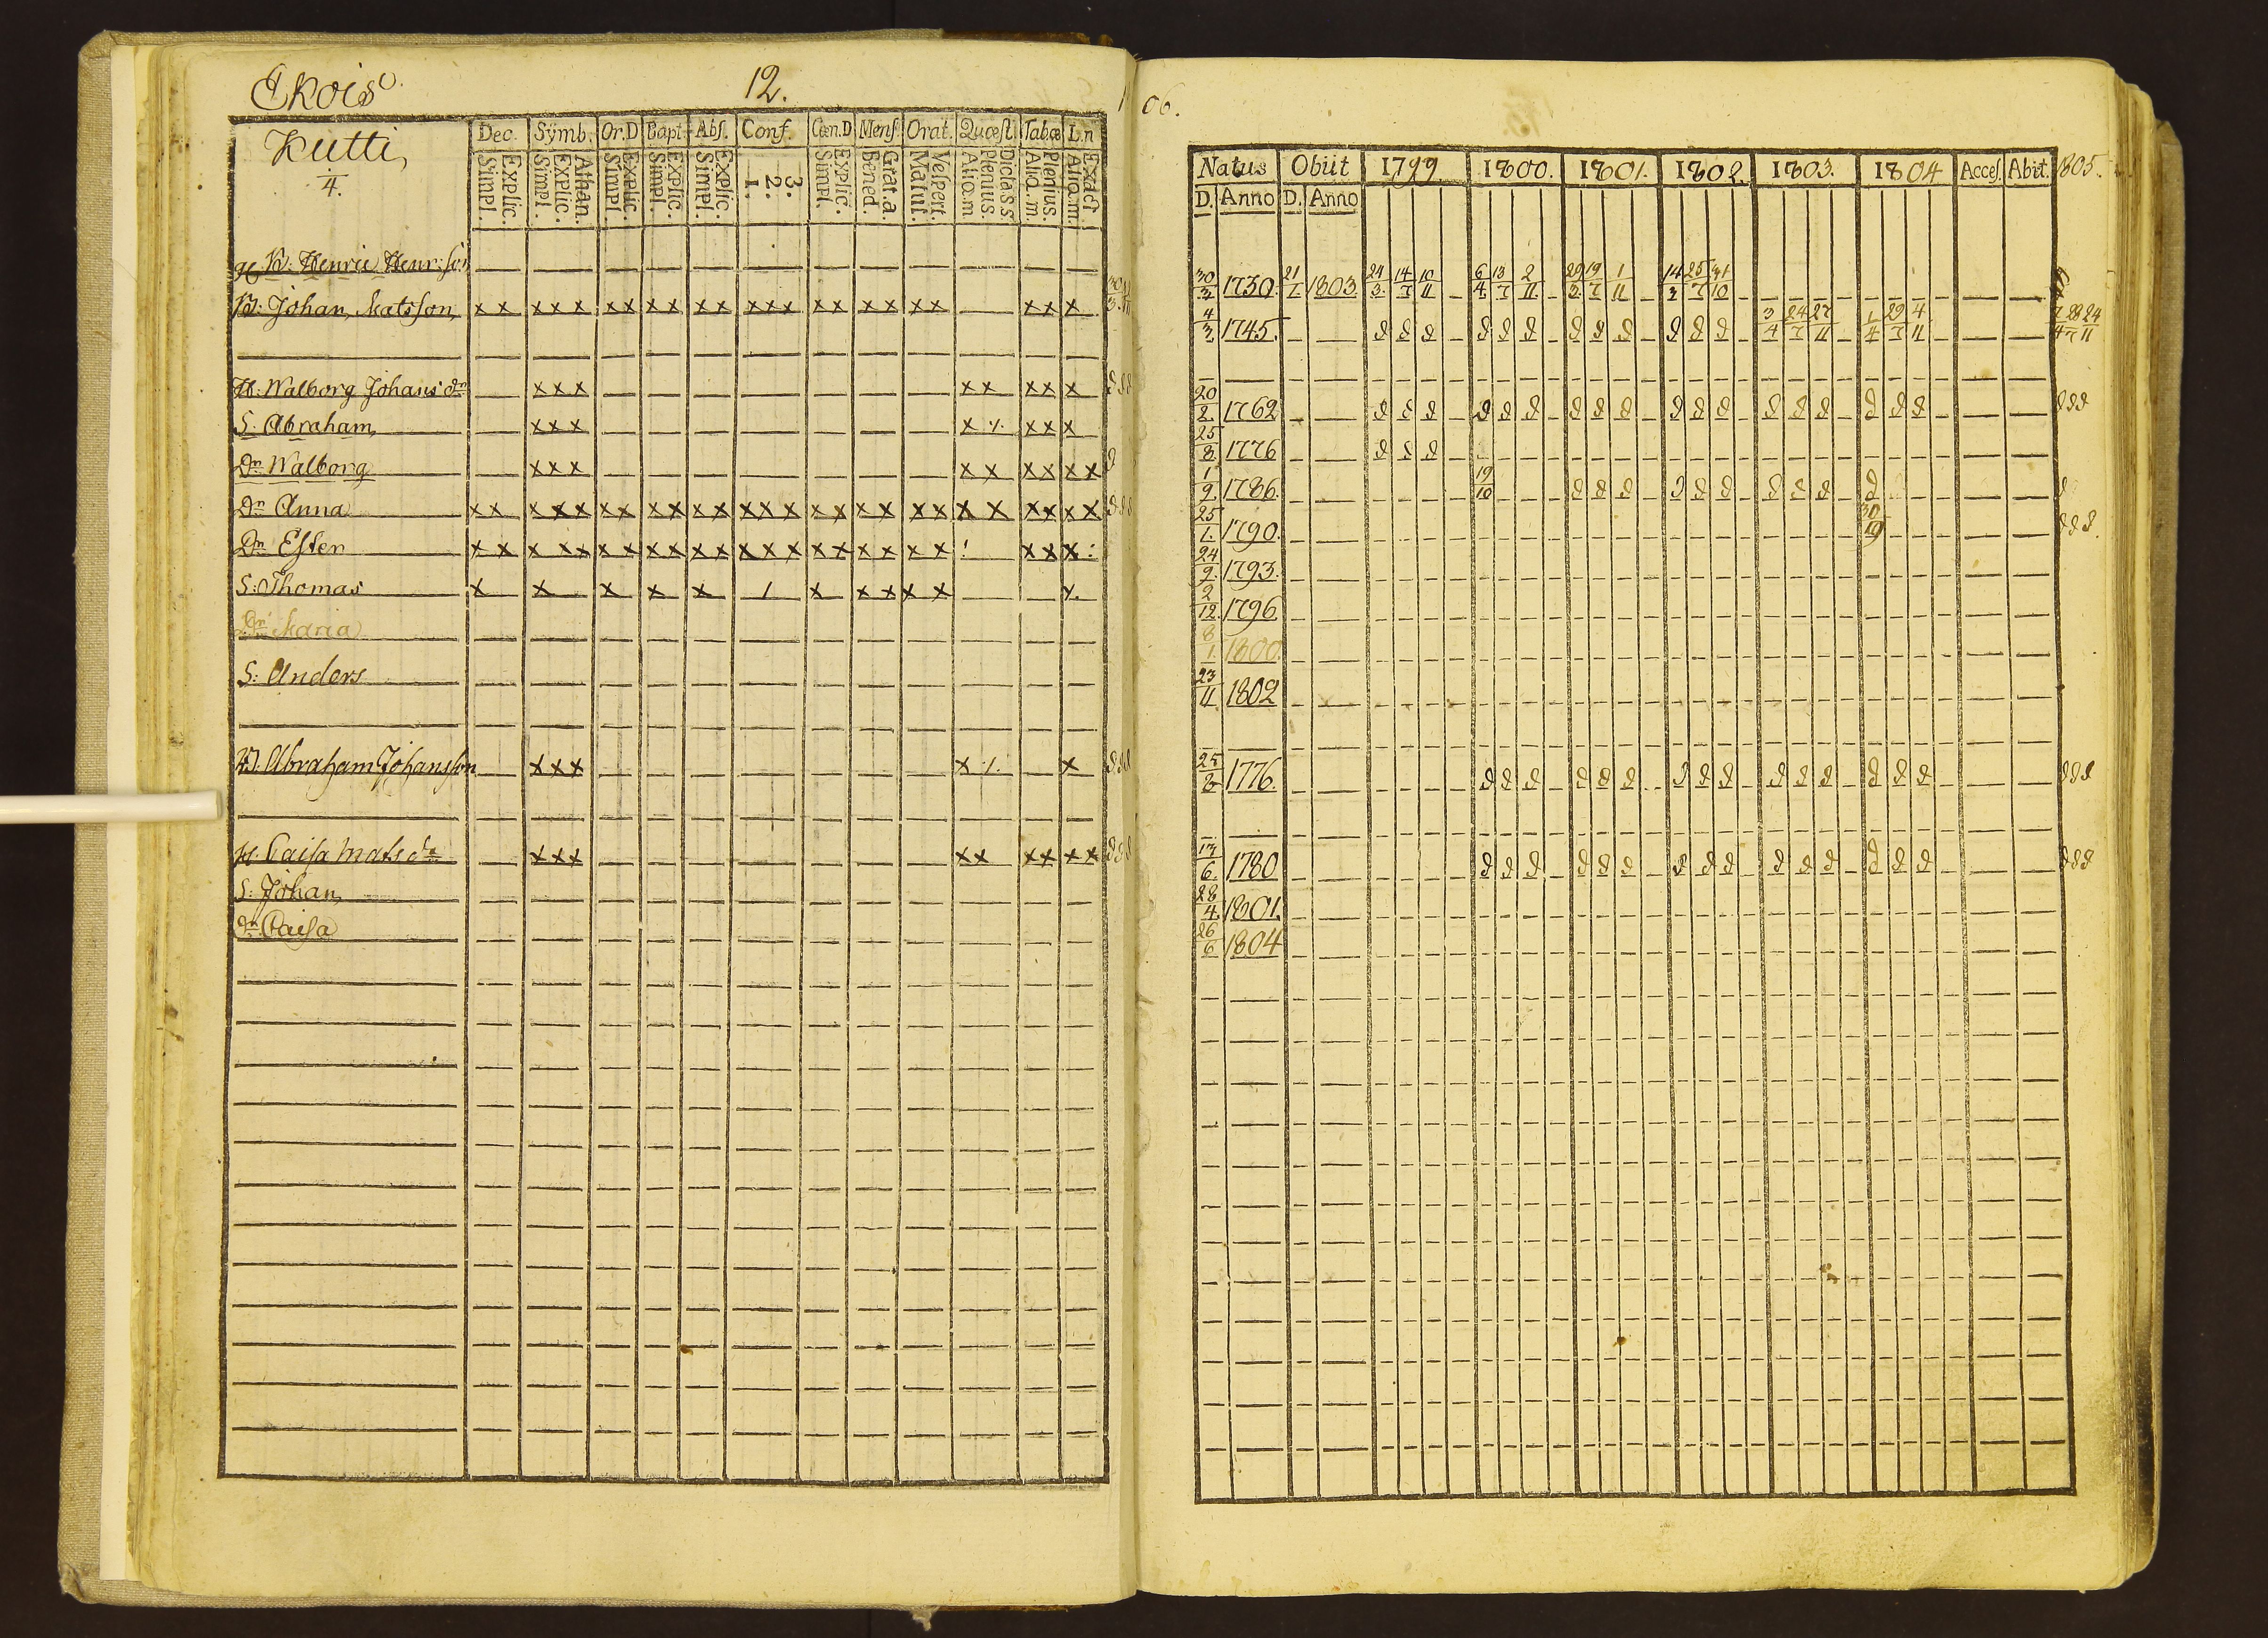 Ekois
12.
Kutti,
4.
Dec. Symb. Or.D Bapt. Abs. Conf. Cœn.D Mens. Orat. Quæst. Tabœ L.n
Explic. Simpl. Athan. Explic. Simpl. Explic. Simpl. Explic. Simpl. Explic. Simpl. 3. 2. 1. Explic. Simpl. Grat.a. Bened. Vespert. Matut. Dicta s s. Plenius. Aliq.m Plenius. Aliq.m. Exact Aliq.m.
Henric Henr:son
B: Johan Matsson x x x x x x x x x x x x x x x x x x x x x x x
H: Walborg Johans dr x x x x x x x x
S. Abraham x x x x ⁒ x x x
Dr Walborg x x x x x x x x x
Dr Anna x x x x x x x x x x x x x x x x x x x x x x x x x x
Dr Ester x x x x x x x x x x x x x x x x x x x x ! x x x :
S: Thomas x x x x x / x x x x x x
Dr Maria
S: Anders
B. Abraham Johansson x x x x ⁒ x
H. Caisa Mats dr x x x x x x x x x
S: Johan
dr Caisa
06.
Natus Obiit 1799. 1800. 1801. 1802. 1803. 1804 Acces. Abit. 1805.
D. Anno D. Anno
30/3 1730. 21/1 1803 24/3 14/7 10/11 6/4 13/7 2/11 29/3 19/7 1/11 14/3 25/7 31/10
4/3 1745. 3/4 24/7 27/11 1/4 29/7 4/11 7/4 28/7 24/11
20/2 1762
25/8 1776
1/9 1786. 19/10
25/1 1790. 30/19
24/9 1793.
2/12 1796
8/1 1800.
23/11 1802
25/8 1776.
13/6 1780
28/4 1801.
26/6 1804